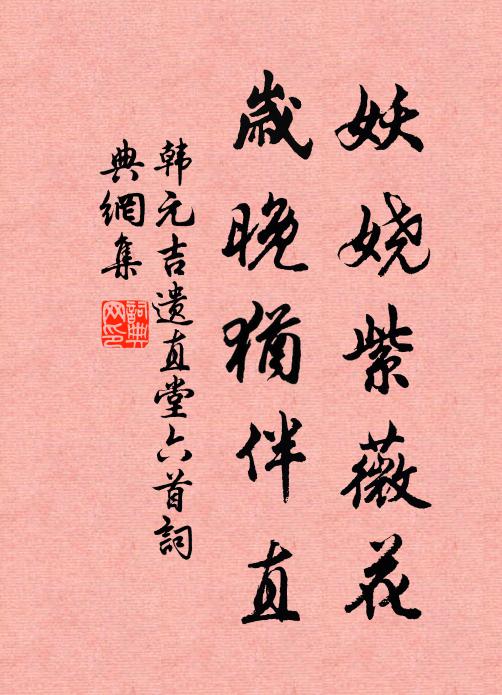 妖娆紫薇花
歲晚猶伴直
韩元吉遗直堂六首詞
典網集
詞典
网印